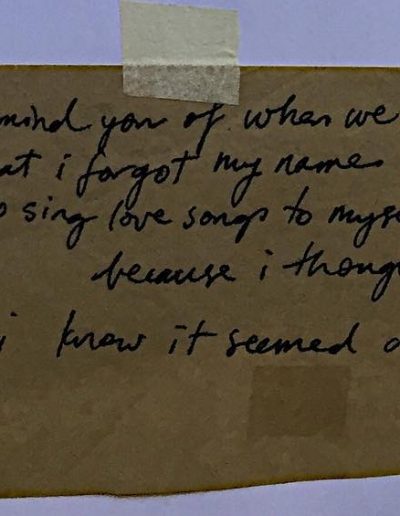 mind you of when we
at i forgot my names
o sing love songs to myse
because i thoug
i know it seemed o